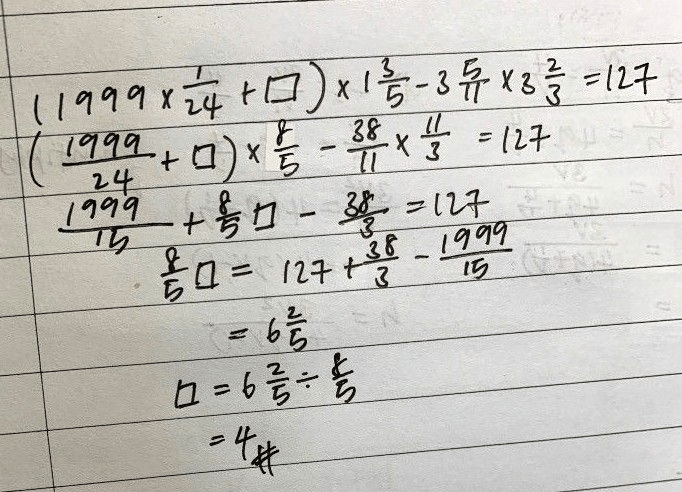 (1999 × 1/24 + □) × 1 3/5 − 3 5/11 × 3 2/3 = 127
(1999/24 + □) × 8/5 − 38/11 × 11/3 = 127
1999/15 + 8/5 □ − 38/3 = 127
8/5 □ = 127 + 38/3 − 1999/15
= 6 2/5
□ = 6 2/5 ÷ 8/5
= 4#